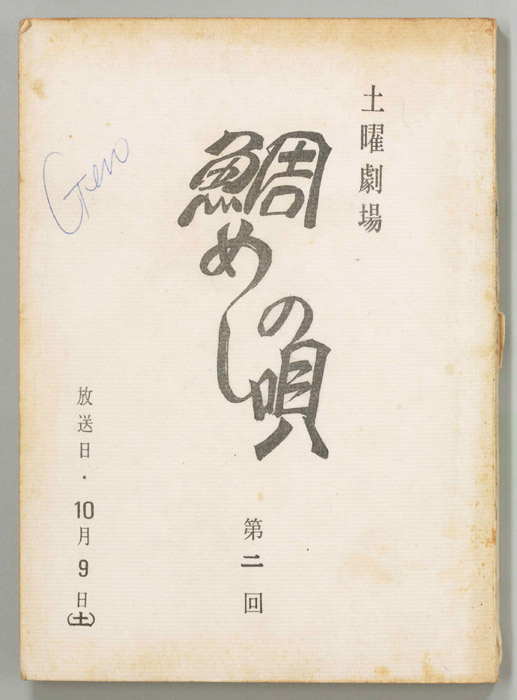 土曜劇場
鯛めしの唄
第二回
放送日・10月9日(土)
Gen